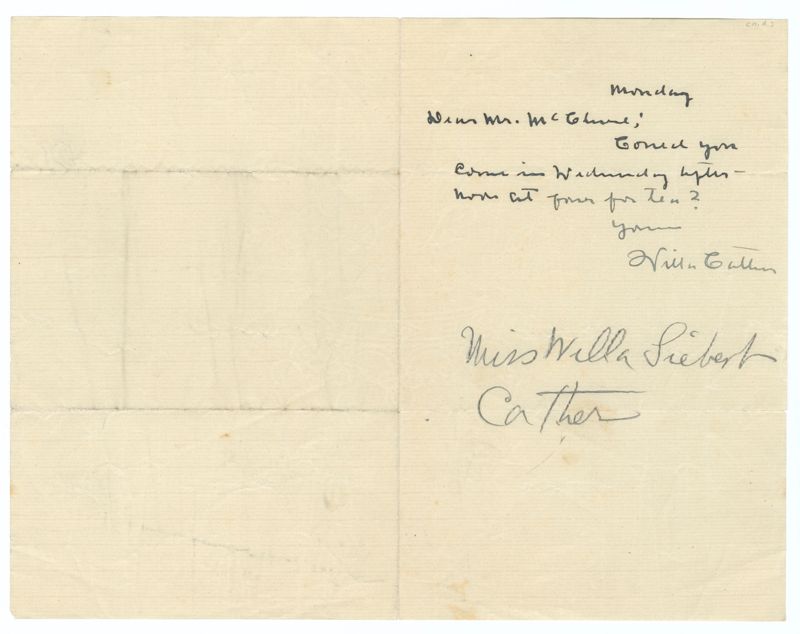 Monday
Dear Mr. McClure;
Could you
come in Wednesday after-
noon at four for tea?
Yours
Willa Cather
Miss Willa Siebert
Cather